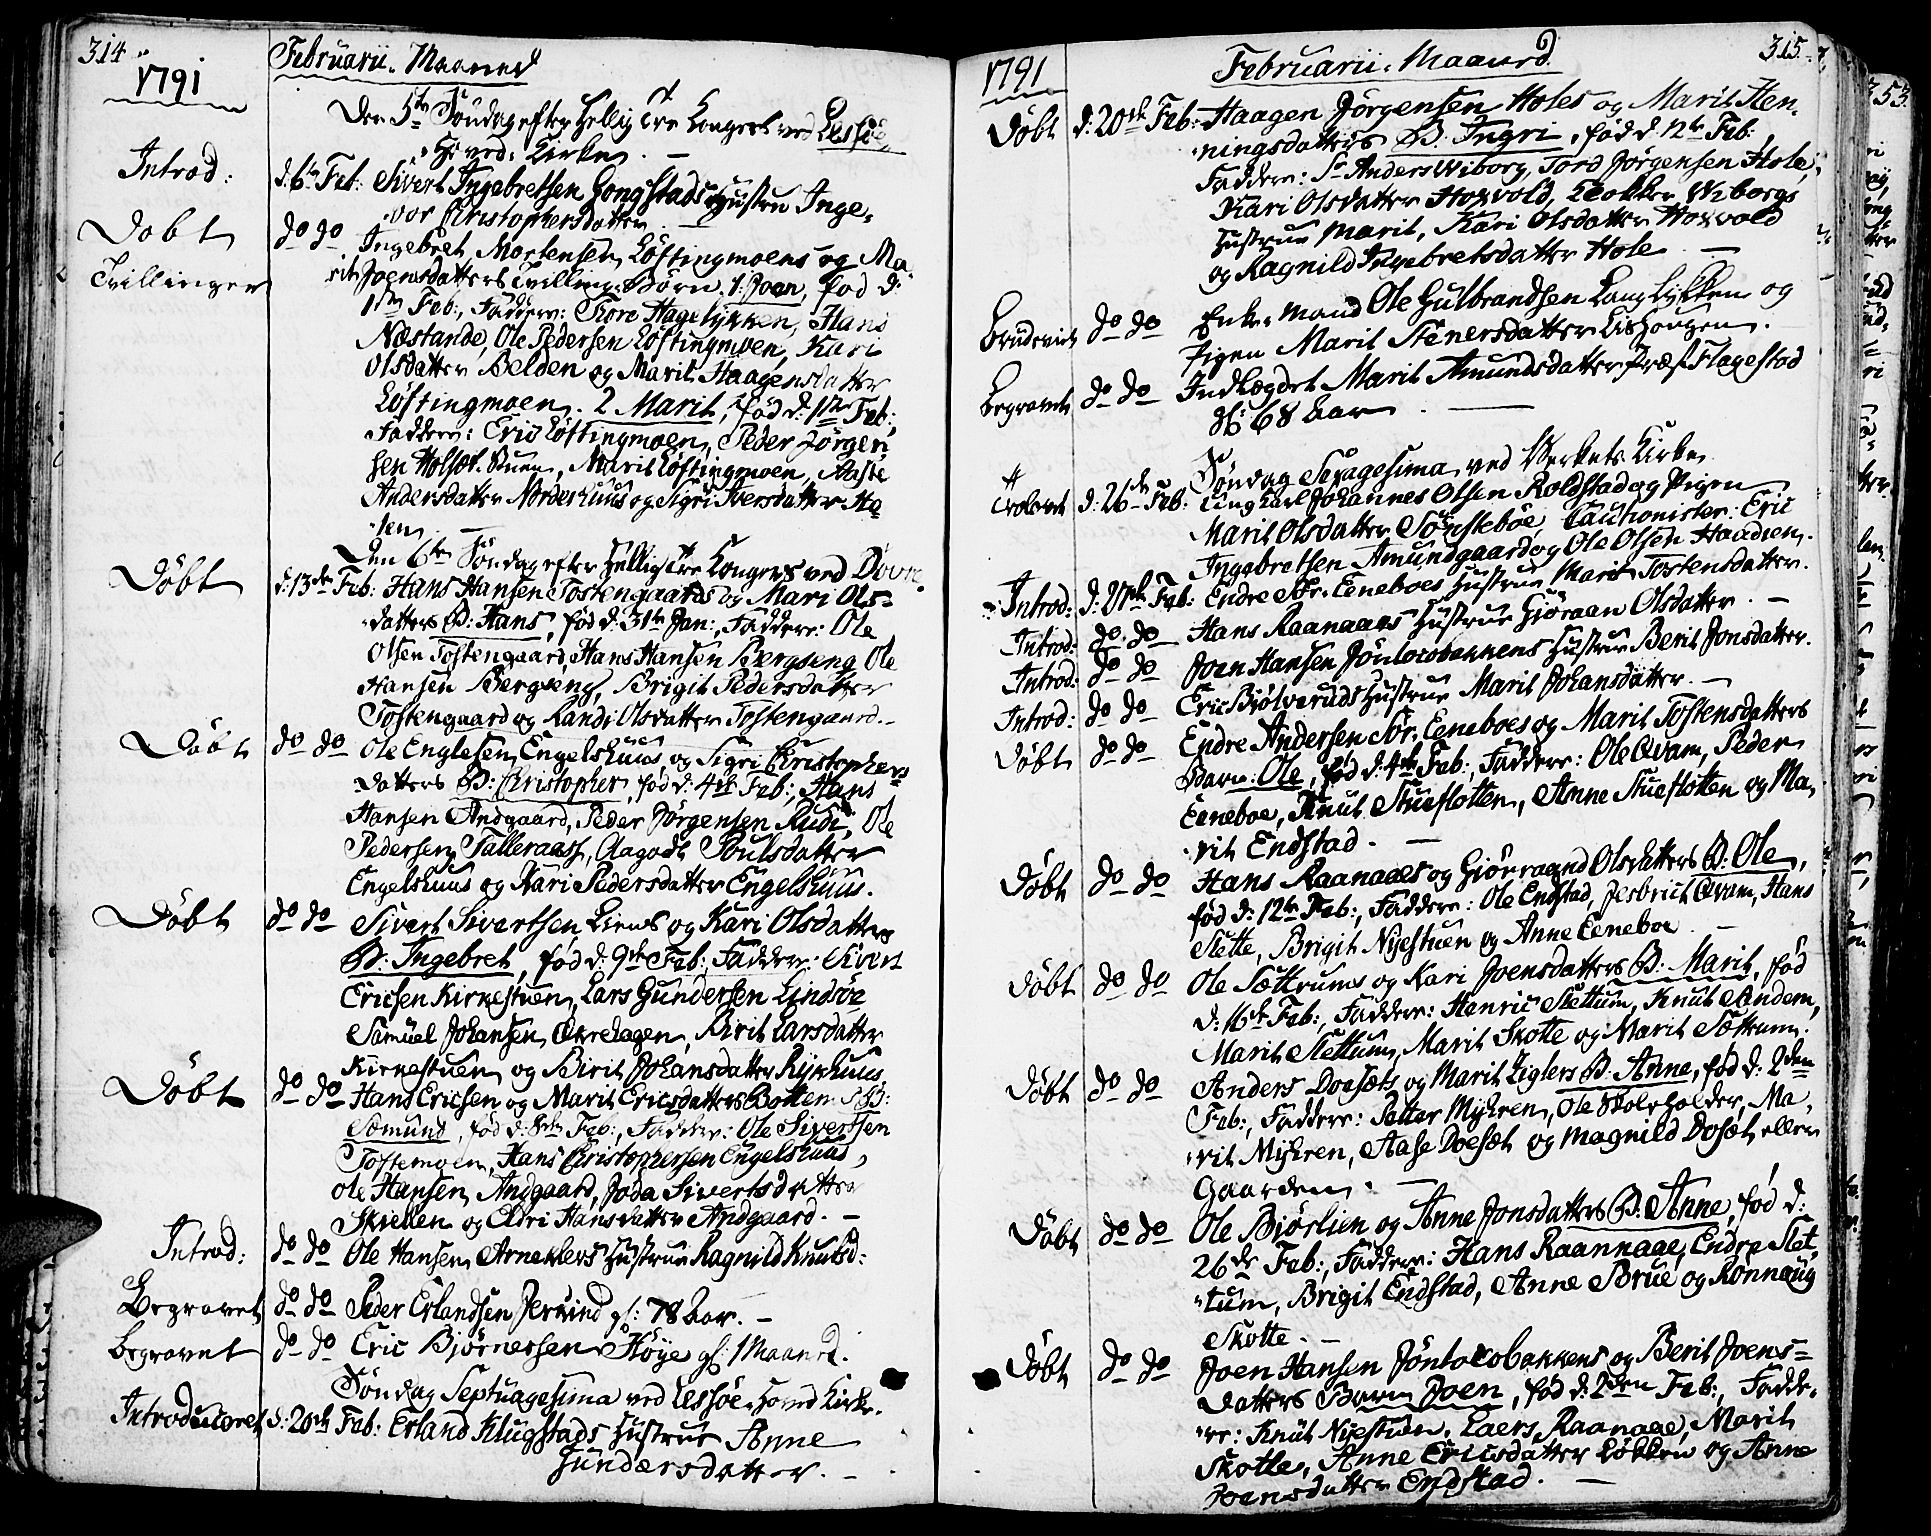 314
1791
Februarii Maaned
Den 5te Søndag efter Hellig Tre Konger ved Lessøe
Hoved Kirke. —
Introd: d: 6te Feb: Sivert Ingebretsen Gongstads Hustru Inge-
bor Christophersdatter
Døbt do do Ingebret Mortensen Løftingmoens og Ma-
Tvillinger rit Joensdatters Tvilling-Børn. 1: Joen, fød d:
1ste Feb:, Faddere: Tore Hagelykken, Hans
Næstande, Ole Pedersen Løftingmoen, Kari
Olsdatter Belden og Marit Haagensdatter
Løftingmoen. 2 Marit, fød d: 1ste Feb:,
Faddere: Eric Løftingmoen, Peder Jörgen
sen Holset-Stuen, Marit Løftingmoen, Aase
Andersdatter Norderhuus og Sigri Iversdatter He-
len. —
Den 6te Søndag efter Hellig Tre Konger ved Dovre
Døbt d: 13de Feb: Hans Hansen Tostengaards og Mari Ols-
datters B: Hans, fød d: 31te Jan:, Faddere: Ole
Olsen Tostengaard, Hans Hansen Bergseng Ole
Hansen Bergseng, Brigit Pedersdatter
Tostengaard og Randi Olsdatter Tostengaard. —
Døbt do do Ole Englesen Engelshuus og Sigri Christophers
datters B: Christopher, fød d: 4de Feb:, Hans
Hansen Andgaard, Peder Jørgensen Rudi, Ole
Pedersen Talleraas, Aagodt Poulsdatter
Engelshuus og Kari Pedersdatter Engelshuus.
Døbt do do Sivert Sivertsen Liens og Kari Olsdatters
B: Ingebret, fød d: 9de Feb: Faddere: Sivert
Ericsen Kirkestuen, Lars Gundersen Lindsøe
Samuel Johansen Ækrehagen, Birit Larsdatter
Kirkestuen og Birit Johansdatter Rykhuus
Døbt do do Hans Ericsen og Marit Ericsdatters Bottens B:
Æmund, fød d: 8de Feb:, Faddere: Ole Sivertsen
Toftemoen, Hans Christophersen Engelshuus,
Ole Hansen Andgaard, Joda Sivertsdatter
Skielen og Eldri Hansdatter Andgaard. —
Introd: do do Ole Hansen Arneklevs Hustrue Ragnild Knutsd:
Begravet do do Peder Erlandsen Jerkind gl: 78 Aar. —
Begravet do do Eric Bjørnersen Høye gl: 1 Maaned.
Søndag Septuagesima ved Lessøe Hoved Kirke.
Introduceret d: 20de Feb: Erland Klugstads Hustrue Anne
Gundersdatter. —
315
1791
Februarii Maaned
Døbt d: 20de Feb: Haagen Jörgensen Holes og Marit Hen-
ningsdatters B: Ingri, fød d: 12te Feb:,
Faddere: Sr Anders Wiborg, Tord Jørgensen Hole,
Kari Olsdatter Hoxvold, Klokker Wiborgs
Hustrue Marit, Kari Olsdatter Hoxvold
og Ragnild Ingebretsdatter Hole —
Brudeviet do do Enke-Mand Ole Gulbrandsen Langlykken og
Pigen Marit Stenersdatter Lishougen.
Begravet do do Indlægdet Marit Amundsdatter Præst-Flagestad
gl: 68 Aar. —
Søndag Sexagesima ved Verkets Kirke
Trolovet d: 26de Feb: Ungkarl Johannes Olsen Roldstad og Pigen
Marit Olsdatter Sönstebøe Cautionister: Eric
Ingebretsen Amundgaard og Ole Olsen Haadsen.
Introd: d: 27de Feb: Endre Sr. Eeneboes Hustrue Marit Tostensdatter.
Introd: do do Hans Raanaaes Hustrue Giøraan Olsdatter. —
Introd: do do Joen Hansen Jöntocobakkens Hustrue Berit Jonsdatter.
Introd: do do Eric Bjølveruds Hustrue Marit Johansdatter. —
Døbt do do Endre Andersen Sør. Eeneboes og Marit Tostensdatters
Barn: Ole, fød d: 4de Feb:, Faddere: Ole Qvam, Peder
Eeneboe, Knut Stueflotten, Anne Stueflotten og Ma-
rit Endstad. —
Døbt do do Hans Raanaaes og Giörraand Olsdatters B: Ole,
fød d: 12te Feb:, Faddere: Ole Endstad, Jesbrich Qvam, Hans
Slette, Brigit Nyestuen og Anne Eeneboe. —
Døbt do do Ole Sættrums og Kari Joensdatters B: Marit, fød
d: 16de Feb:, Faddere: Henric Slettum, Knut Andem,
Marit Slettum, Marit Skotte og Marit Sættrum.
Døbt do do Anders Doesæts og Marit Ziglers B: Anne, fød d: 2den
Feb:, Faddere: Petter Myhren, Ole Skoleholder, Ma-
rit Myhren, Aase Doesæt og Magnild Dosæt eller
Gaarden. —
Døbt do do Ole Bjørlien og Anne Jonsdatters B: Anne, fød d:
26de Feb:, Faddere: Hans Raannaae, Endre Slet-
tum, Brigit Endstad, Anne Brue og Rönnaug
Skotte. —
Døbt do do Joen Hansen Jöntocobakkens og Berit Joens-
datters Barn Joen, fød d: 2den Feb:, Fadde-
re: Knut Nyestuen, Laers Raanaae, Marit
Skotte, Anne Ericsdatter Løkken og Anne
Joensdatter Endstad. —